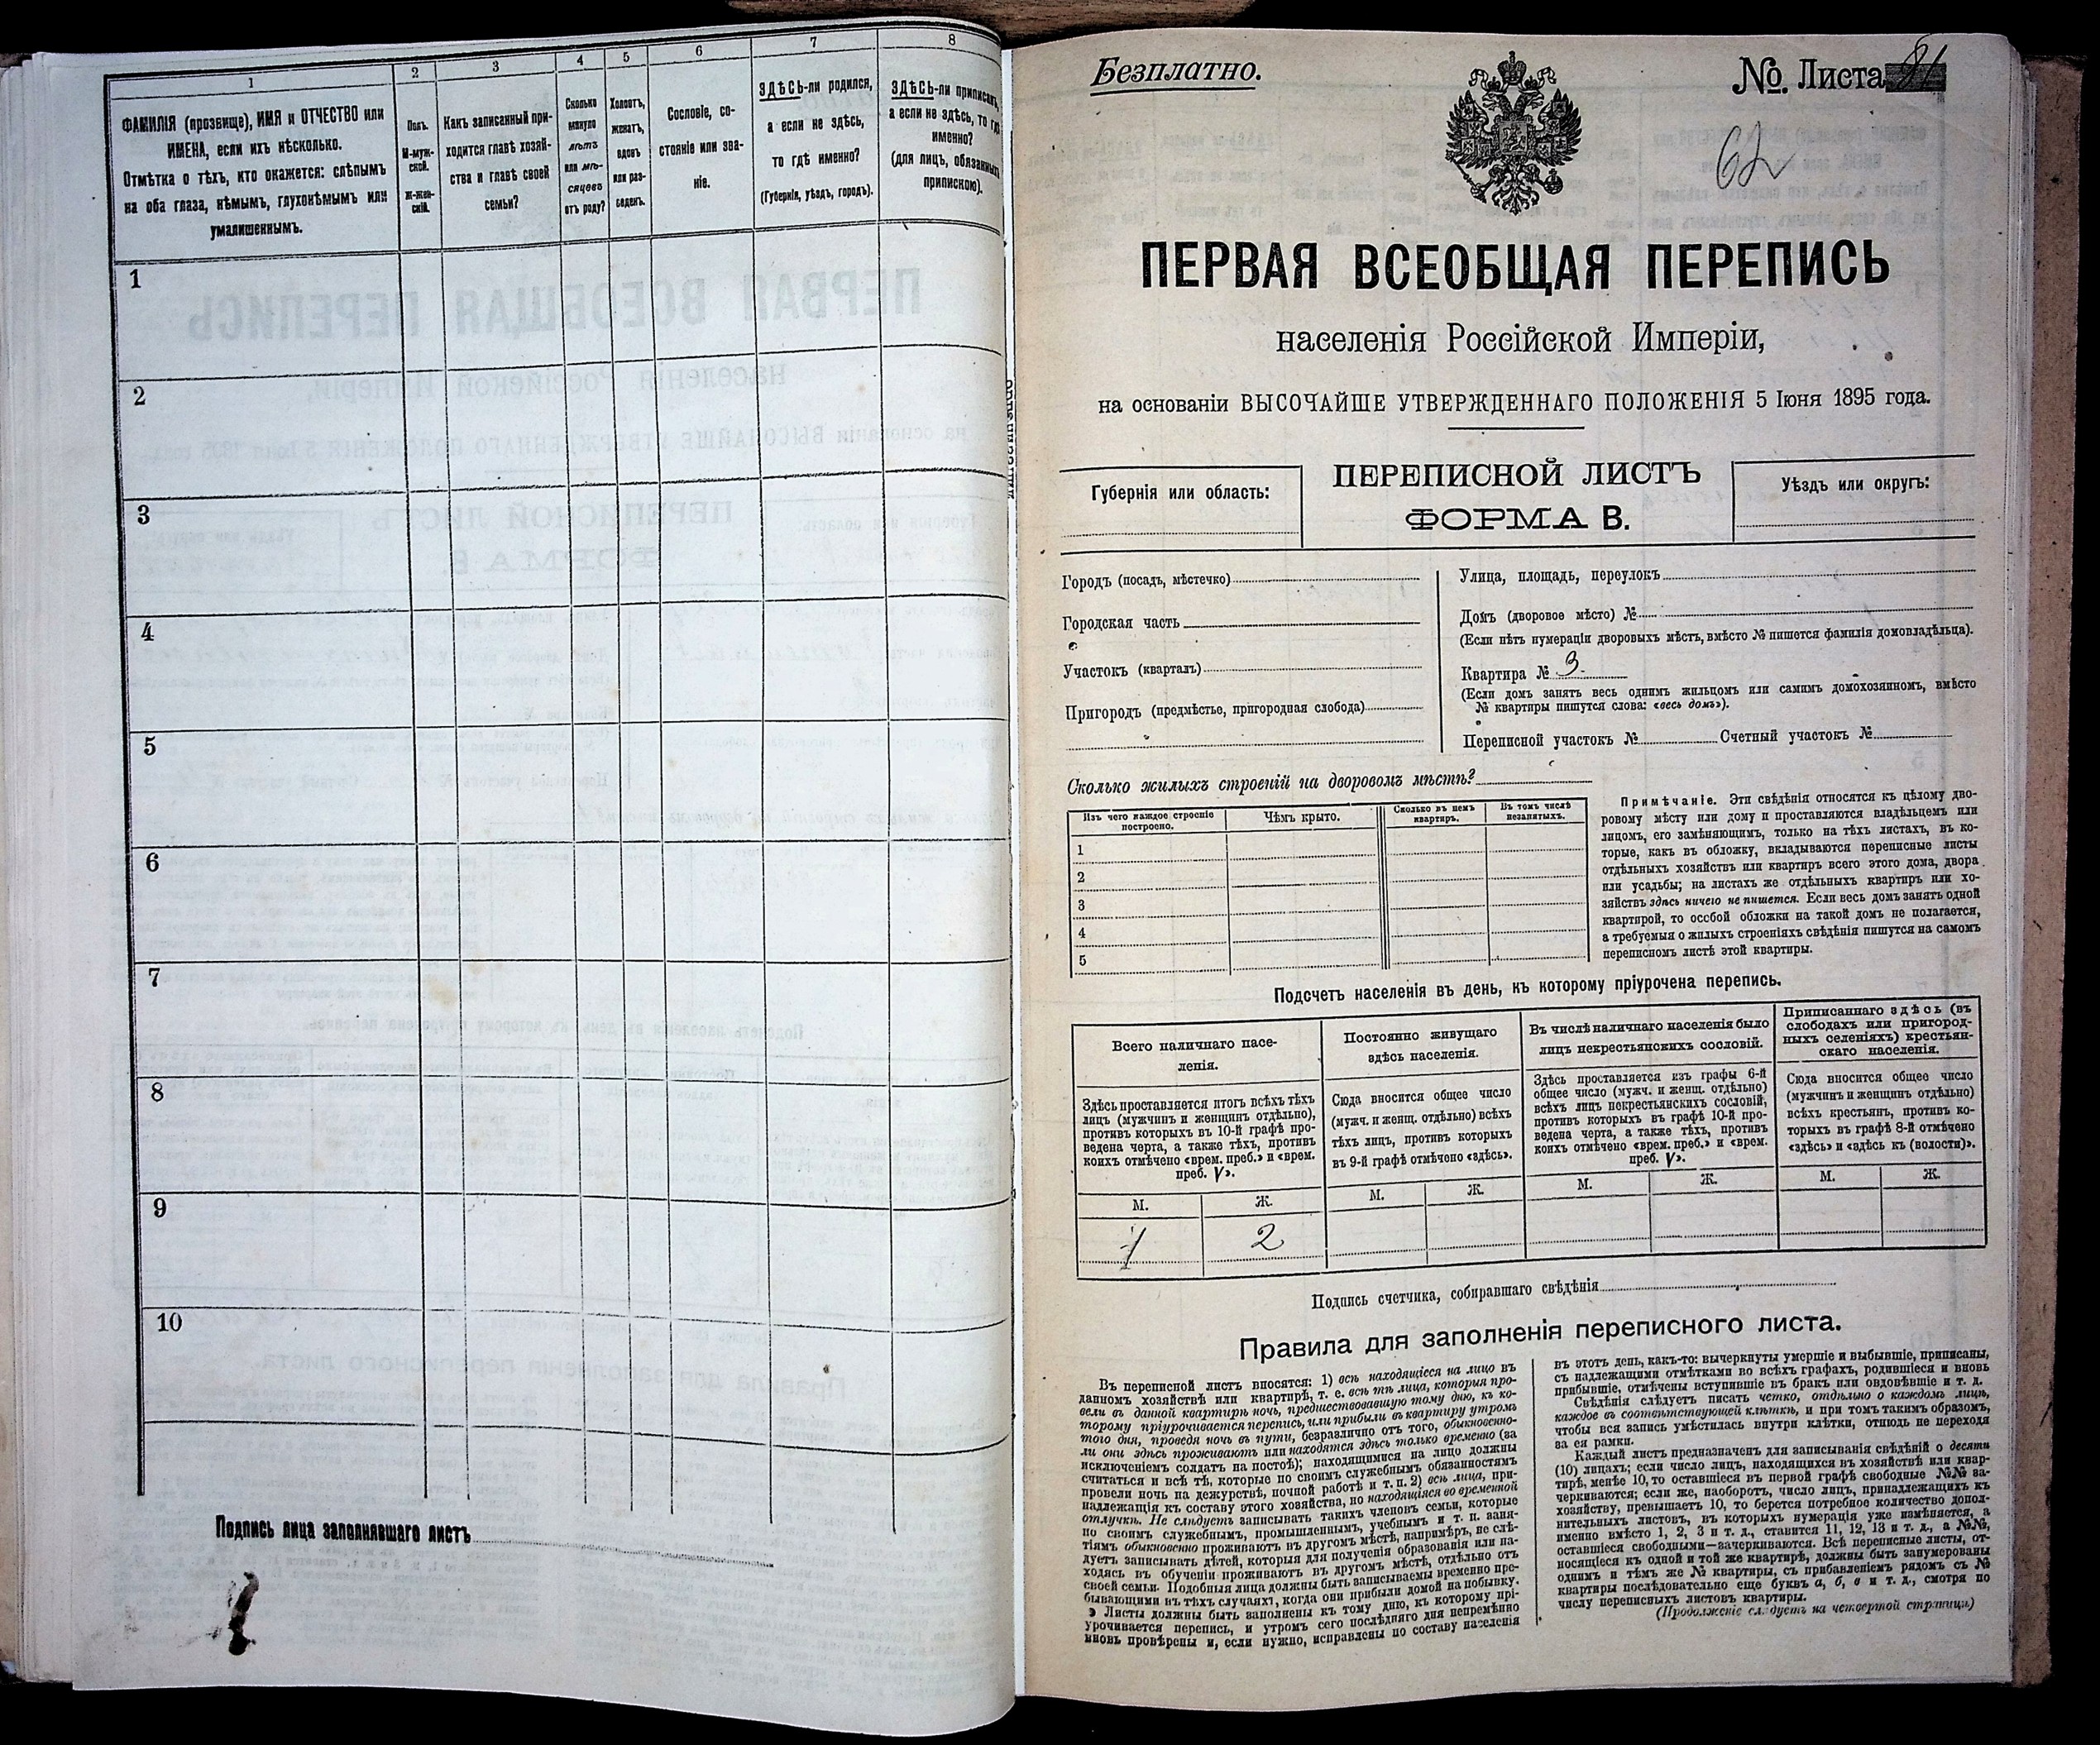 1
2
3
4
5
6
7
8
ФАМИЛІЯ (прозвище), ИМЯ и ОТЧЕСТВО или
ИМЕНА, если ихъ нѣсколько.
Отмѣтка о тѣхъ, кто окажется: слѣпымъ
на оба глаза, нѣмымъ, глухонѣмымъ или
умалишеннымъ.
Полъ.
М-муж-
ской.
Ж-жен-
скій.
Какъ записанный при-
ходится главѣ хозяй-
ства и главѣ своей
семьи?
Сколько
минуло
лѣтъ
или мѣ-
сяцевъ
отъ роду?
Холостъ,
женатъ,
вдовъ
или раз-
веденъ.
Сословіе, со-
стояніе или зва-
ніе.
ЗДѢСЬ-ли родился,
а если не здѣсь,
то гдѣ именно?
(Губернія, уѣздъ, городъ).
ЗДѢСЬ-ли приписанъ,
а если не здѣсь, то гдѣ
именно?
(для лицъ, обязанныхъ
припискою).
1
2
3
4
5
6
7
8
9
10
Подпись лица заполнявшаго листъ
Безплатно.
№. Листа 81
62
ПЕРВАЯ ВСЕОБЩАЯ ПЕРЕПИСЬ
населенія Россійской Имперіи,
на основаніи ВЫСОЧАЙШЕ УТВЕРЖДЕННАГО ПОЛОЖЕНІЯ 5 Іюня 1895 года.
Губернія или область:
ПЕРЕПИСНОЙ ЛИСТЪ
ФОРМА В.
Уѣздъ или округъ:
Городъ (посадъ, мѣстечко)
Городская часть
Участокъ (кварталъ)
Пригородъ (предмѣстье, пригородная слобода)
Улица, площадь, переулокъ
Домъ (дворовое мѣсто) №
(Если нѣтъ нумераціи дворовыхъ мѣстъ, вмѣсто № пишется фамилія домовладѣльца).
Квартира № 3.
(Если домъ занятъ весь однимъ жильцомъ или самимъ домохозяиномъ, вмѣсто
№ квартиры пишутся слова: «весь домъ»).
Переписной участокъ № Счетный участокъ №
Сколько жилыхъ строеній на дворовомъ мѣстѣ?
Изъ чего каждое строеніе
построено.
Чѣмъ крыто.
Сколько въ немъ
квартиръ.
Въ томъ числѣ
незанятыхъ.
1
2
3
4
5
Примѣчаніе. Эти свѣдѣнія относятся къ цѣлому дво-
ровому мѣсту или дому и проставляются владѣльцемъ или
лицомъ, его замѣняющимъ, только на тѣхъ листахъ, въ ко-
торые, какъ въ обложку, вкладываются переписные листы
отдѣльныхъ хозяйствъ или квартиръ всего этого дома, двора
или усадьбы; на листахъ же отдѣльныхъ квартиръ или хо-
зяйствъ здѣсь ничего не пишется. Если весь домъ занятъ одной
квартирой, то особой обложки на такой домъ не полагается,
а требуемыя о жилыхъ строеніяхъ свѣдѣнія пишутся на самомъ
переписномъ листѣ этой квартиры.
Подсчетъ населенія въ день, къ которому пріурочена перепись.
Всего наличнаго насе-
ленія.
Постоянно живущаго
здѣсь населенія.
Въ числѣ наличнаго населенія было
лицъ некрестьянскихъ сословій.
Приписаннаго здѣсь (въ
слободахъ или пригород-
ныхъ селеніяхъ) крестьян-
скаго населенія.
Здѣсь проставляется итогъ всѣхъ тѣхъ
лицъ (мужчинъ и женщинъ отдѣльно),
противъ которыхъ въ 10-й графѣ про-
ведена черта, а также тѣхъ, противъ
коихъ отмѣчено «врем. преб.» и «врем.
преб. V».
Сюда вносится общее число
(мужч. и женщ. отдѣльно) всѣхъ
тѣхъ лицъ, противъ которыхъ
въ 9-й графѣ отмѣчено «здѣсь».
Здѣсь проставляется изъ графы 6-й
общее число (мужч. и женщ. отдѣльно)
всѣхъ лицъ некрестьянскихъ сословій,
противъ которыхъ въ графѣ 10-й про-
ведена черта, а также тѣхъ, противъ
коихъ отмѣчено «врем. преб.» и «врем.
преб. V».
Сюда вносится общее число
(мужчинъ и женщинъ отдѣльно)
всѣхъ крестьянъ, противъ ко-
торыхъ въ графѣ 8-й отмѣчено
«здѣсь» и «здѣсь къ (волости)».
М. Ж. М. Ж. М. Ж. М. Ж.
1 2
Подпись счетчика, собиравшаго свѣдѣнія
Правила для заполненія переписного листа.
Въ переписной листъ вносятся: 1) всѣ находящіеся на лицо въ
данномъ хозяйствѣ или квартирѣ, т. е. всѣ тѣ лица, которыя про-
вели въ данной квартирѣ ночь, предшествовавшую тому дню, къ ко-
торому пріурочивается перепись, или прибыли въ квартиру утромъ
того дня, проведя ночь въ пути, безразлично отъ того, обыкновенно-
ли они здѣсь проживаютъ или находятся здѣсь только временно (за
исключеніемъ солдатъ на постоѣ); находящимися на лицо должны
считаться и всѣ тѣ, которые по своимъ служебнымъ обязанностямъ
провели ночь на дежурствѣ, ночной работѣ и т. п. 2) всѣ лица, при-
надлежащія къ составу этого хозяйства, но находящіяся во временной
отлучкѣ. Не слѣдуетъ записывать такихъ членовъ семьи, которые
по своимъ служебнымъ, промышленнымъ, учебнымъ и т. п. заня-
тіямъ обыкновенно проживаютъ въ другомъ мѣстѣ, напримѣръ, не слѣ-
дуетъ записывать дѣтей, которыя для полученія образованія или на-
ходясь въ обученіи проживаютъ въ другомъ мѣстѣ, отдѣльно отъ
своей семьи. Подобныя лица должны быть записываемы временно пре-
бывающими въ тѣхъ случаяхъ, когда они прибыли домой на побывку.
Листы должны быть заполнены къ тому дню, къ которому прі-
урочивается перепись, и утромъ сего послѣдняго дня непремѣнно
вновь провѣрены и, если нужно, исправлены по составу населенія
въ этотъ день, какъ-то: вычеркнуты умершіе и выбывшіе, приписаны,
съ надлежащими отмѣтками во всѣхъ графахъ, родившіеся и вновь
прибывшіе, отмѣчены вступившіе въ бракъ или овдовѣвшіе и т. д.
Свѣдѣнія слѣдуетъ писать четко, отдѣльно о каждомъ лицѣ,
каждое въ соотвѣтствующей клѣткѣ, и при томъ такимъ образомъ,
чтобы вся запись умѣстилась внутри клѣтки, отнюдь не переходя
за ея рамки.
Каждый листъ предназначенъ для записыванія свѣдѣній о десяти
(10) лицахъ; если число лицъ, находящихся въ хозяйствѣ или квар-
тирѣ, менѣе 10, то оставшіеся въ первой графѣ свободные №№ за-
черкиваются; если же, наоборотъ, число лицъ, принадлежащихъ къ
хозяйству, превышаетъ 10, то берется потребное количество допол-
нительныхъ листовъ, въ которыхъ нумерація уже измѣняется, а
именно вмѣсто 1, 2, 3 и т. д., ставится 11, 12, 13 и т. д., а №№,
оставшіеся свободными—зачеркиваются. Всѣ переписные листы, от-
носящіеся къ одной и той же квартирѣ, должны быть занумерованы
однимъ и тѣмъ же № квартиры, съ прибавленіемъ рядомъ съ №
квартиры послѣдовательно еще буквъ а, б, в и т. д., смотря по
числу переписныхъ листовъ квартиры.
(Продолженіе слѣдуетъ на четвертой страницѣ)